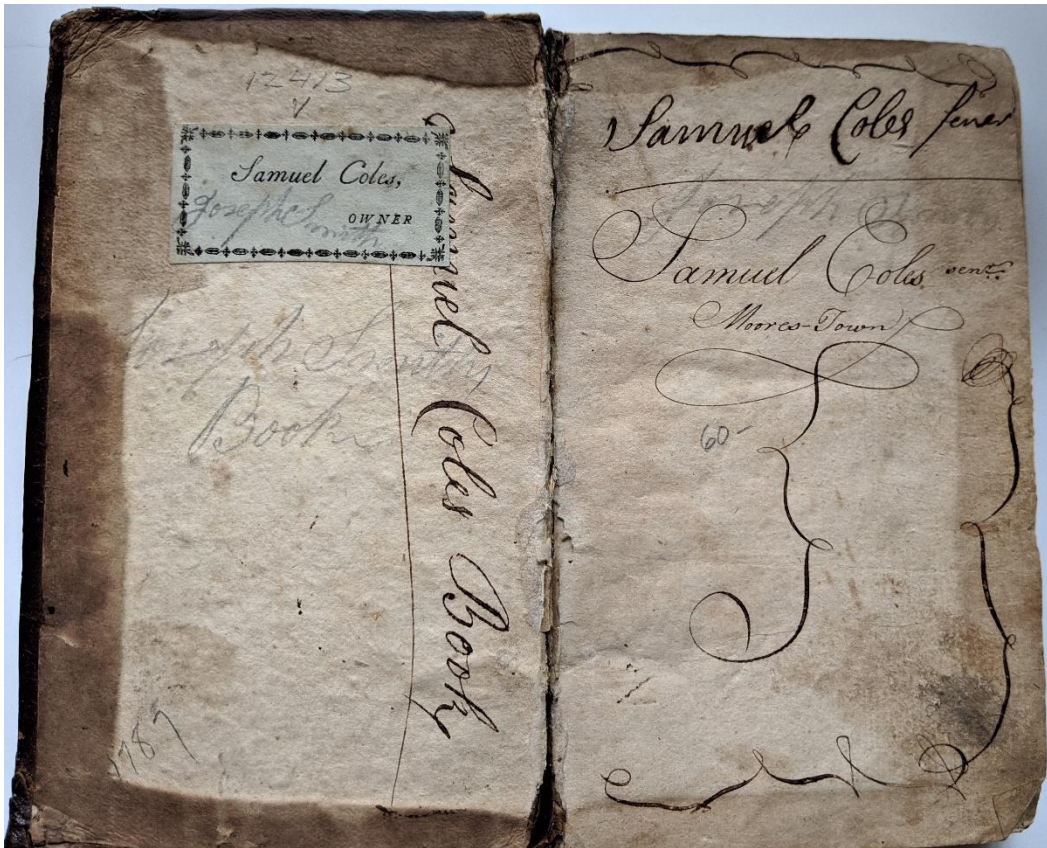 12413
Samuel Coles,
Joseph Smith
OWNER
Joseph Smith
Book
Samuel Coles Book
Samuel Coles sener
Samuel Coles senr.
Moores-Town
60-